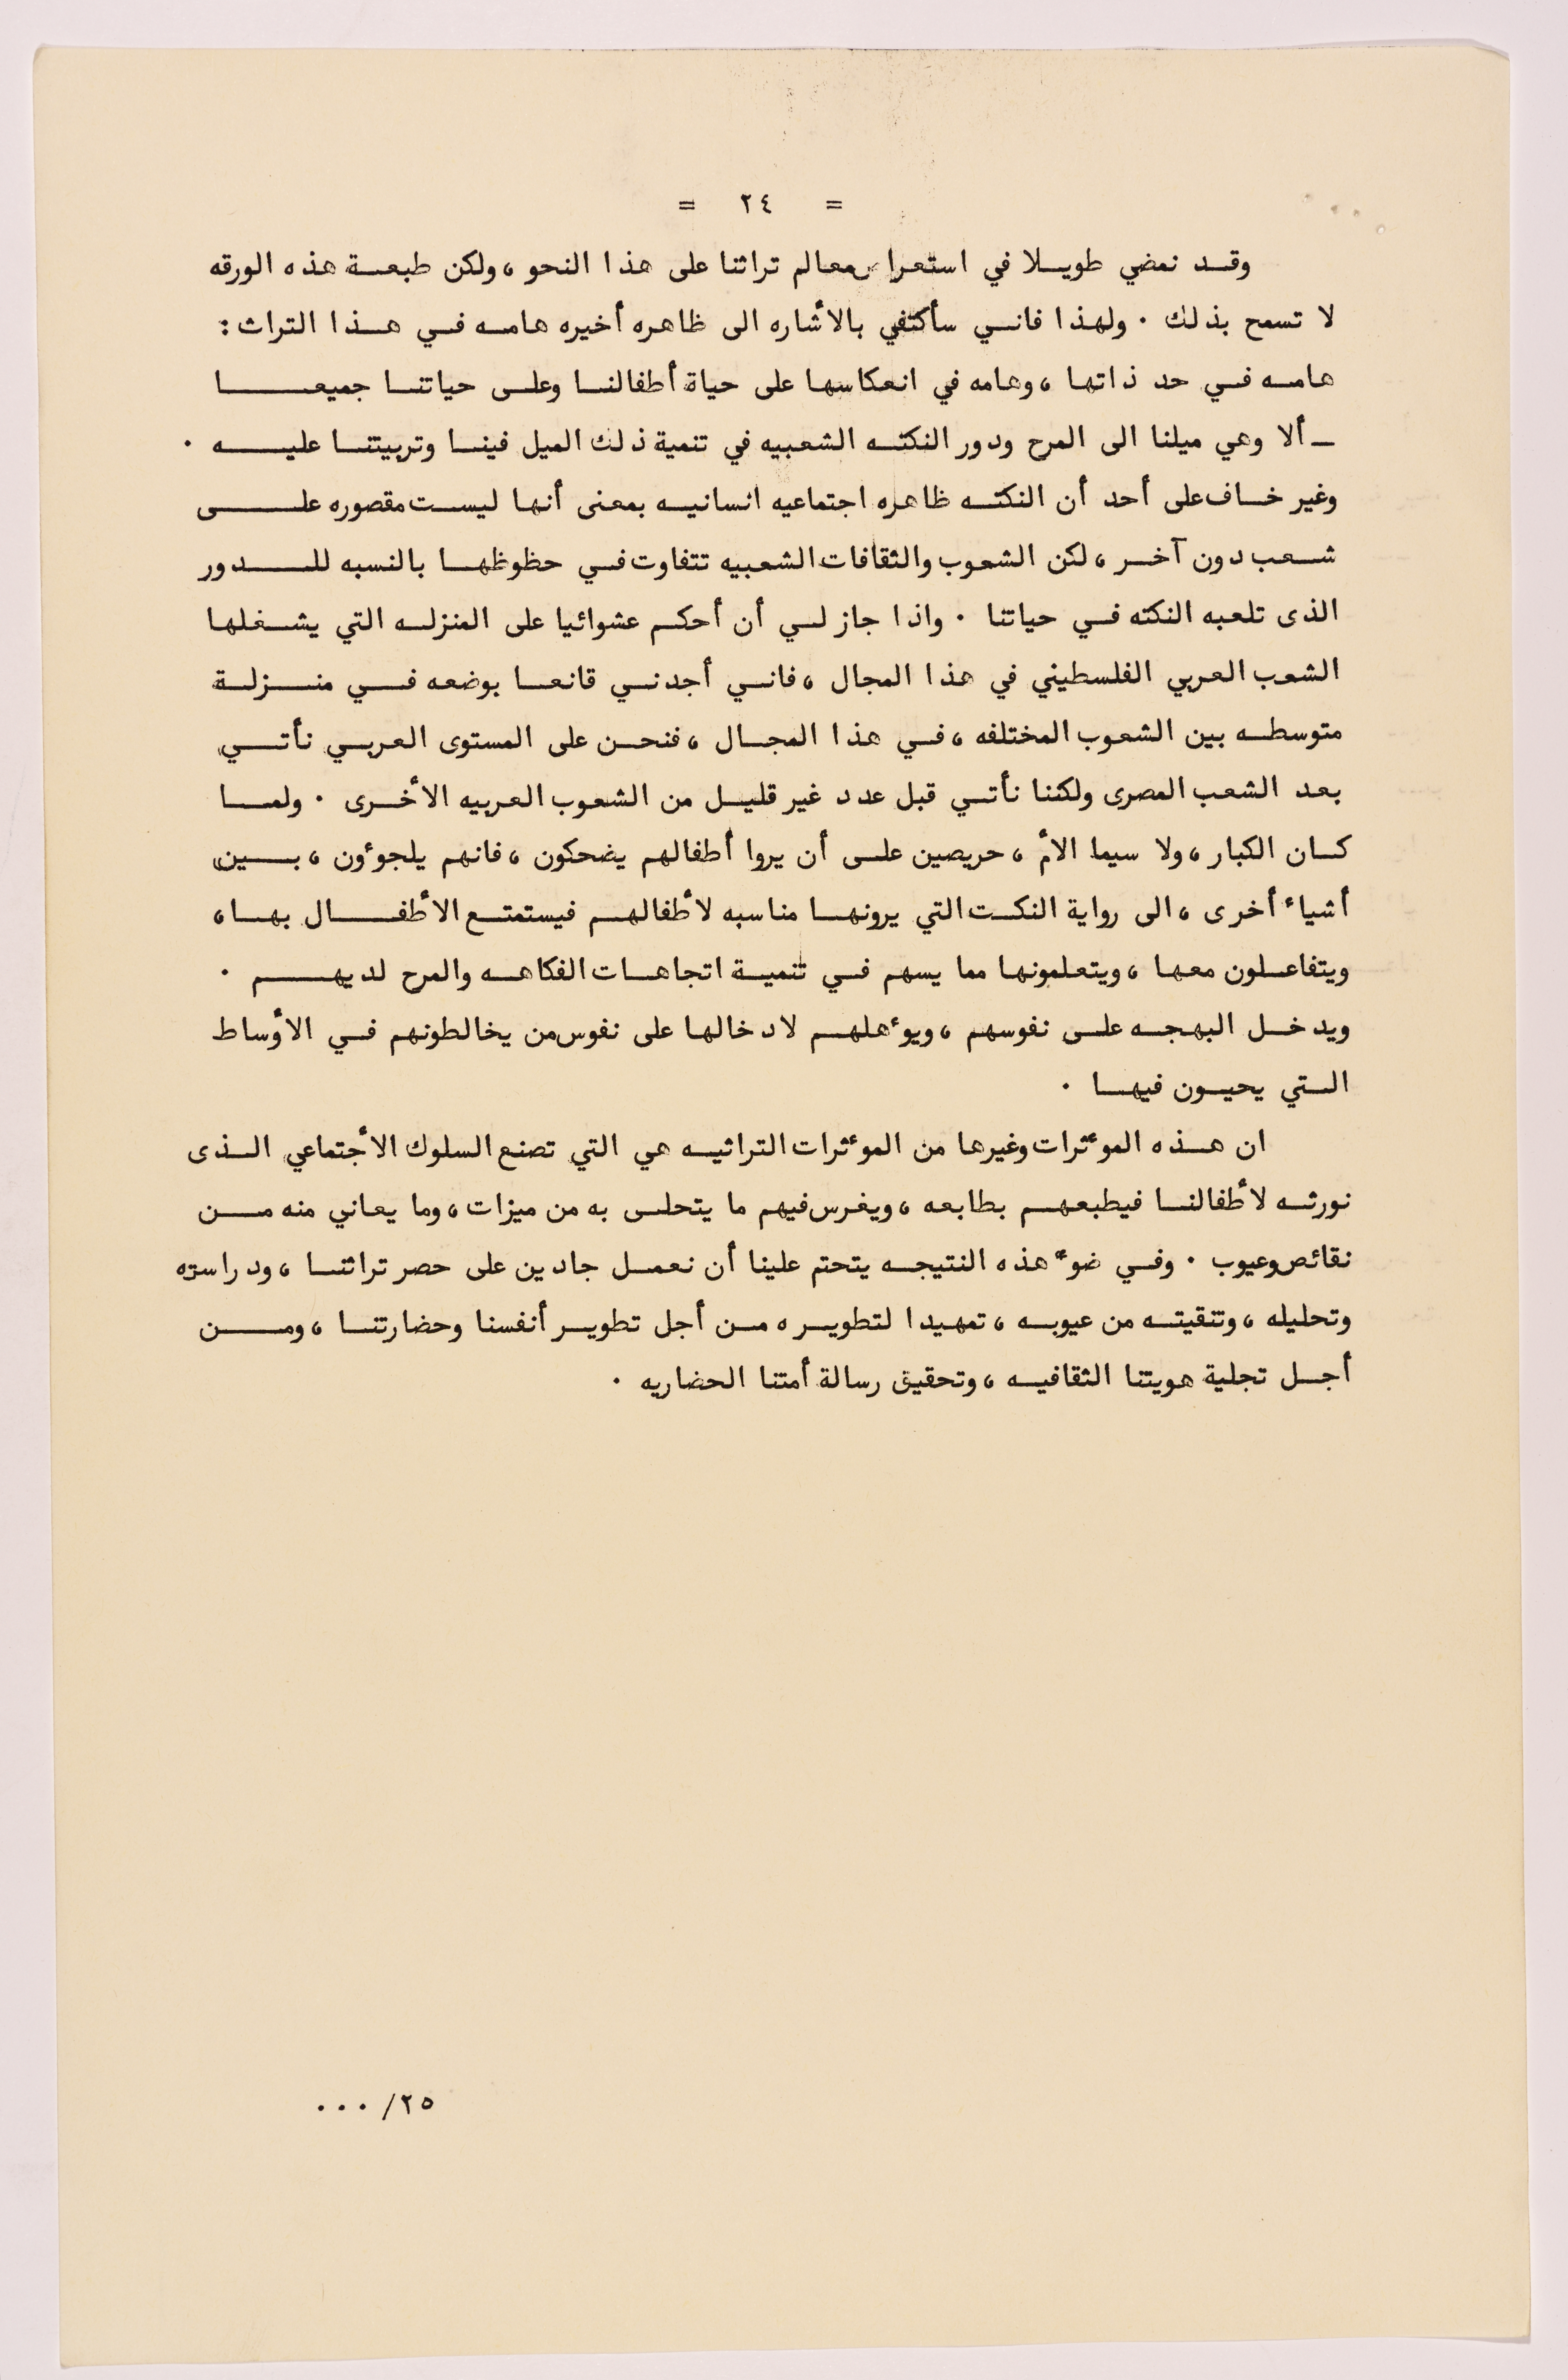 = ٢٤ =
وقد نمضي طويلا في استعراض معالم تراثنا على هذا النحو ، ولكن طبعة هذه الورقه
لا تسمح بذلك . ولهذا فاني سأكتفي بالأشاره الى ظاهره أخيره هامه في هذا التراث :
هامه في حد ذاتها ، وهامه في انعكاسها على حياة أطفالنا وعلى حياتنا جميعا
ـ ألا وهي ميلنا الى المرح ودور النكته الشعبيه في تنمية ذلك الميل فينا وتربيتنا عليه .
وغير خاف على أحد أن النكته ظاهره اجتماعيه انسانيه بمعنى أنها ليست مقصوره على
شعب دون آخر ، لكن الشعوب والثقافات الشعبيه تتفاوت في حظوظها بالنسبه للدور
الذى تلعبه النكته في حياتنا . واذا جاز لي أن أحكم عشوائيا على المنزله التي يشغلها
الشعب العربي الفلسطيني في هذا المجال ، فاني أجدني قانعا بوضعه في منزلة
متوسطه بين الشعوب المختلفه ، في هذا المجال ، فنحن على المستوى العربي نأتي
بعد الشعب المصرى ولكننا نأتي قبل عدد غير قليل من الشعوب العربيه الأخرى . ولما
كان الكبار ، ولا سيما الأم ، حريصين على أن يروا أطفالهم يضحكون ، فانهم يلجوءون ، بين
أشياء أخرى ، الى رواية النكت التي يرونها مناسبه لأطفالهم فيستمتع الأطفال بها ،
ويتفاعلون معها ، ويتعلمونها مما يسهم في تنمية اتجاهات الفكاهه والمرح لديهم .
ويدخل البهجه على نفوسهم ، ويوءهلهم لادخالها على نفوس من يخالطونهم في الأوساط
التي يحيون فيها .
ان هذه الموءثرات وغيرها من الموءثرات التراثيه هي التي تصنع السلوك الأجتماعي الذى
نورثه لأطفالنا فيطبعهم بطابعه ، ويغرس فيهم ما يتحلى به من ميزات ، وما يعاني منه من
نقائص وعيوب . وفي ضوء هذه النتيجه يتحتم علينا أن نعمل جادين على حصر تراثنا ، ودراسته
وتحليله ، وتنقيته من عيوبه ، تمهيدا لتطويره من أجل تطوير أنفسنا وحضارتنا ، ومن
أجل تجلية هويتنا الثقافيه ، وتحقيق رسالة أمتنا الحضاريه .
٢٥/ ...